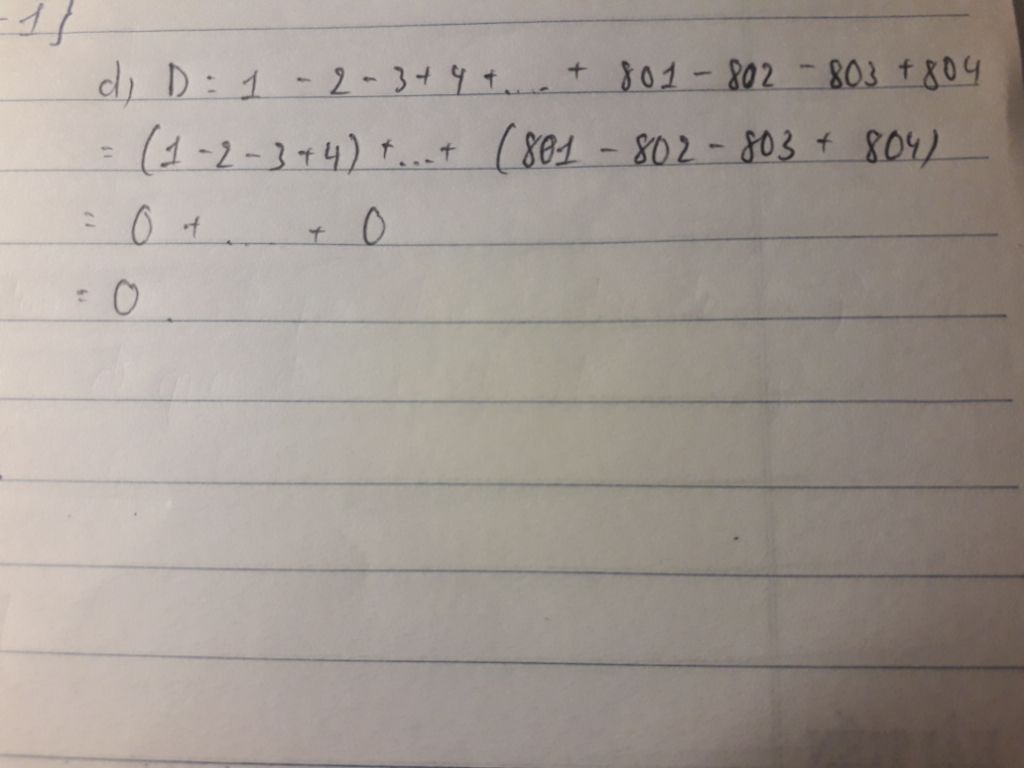 -1}
d, D = 1 - 2 - 3 + 4 + .... + 801 - 802 - 803 + 804
= (1 - 2 - 3 + 4) + ... + (801 - 802 - 803 + 804)
= 0 + .... + 0
= 0.